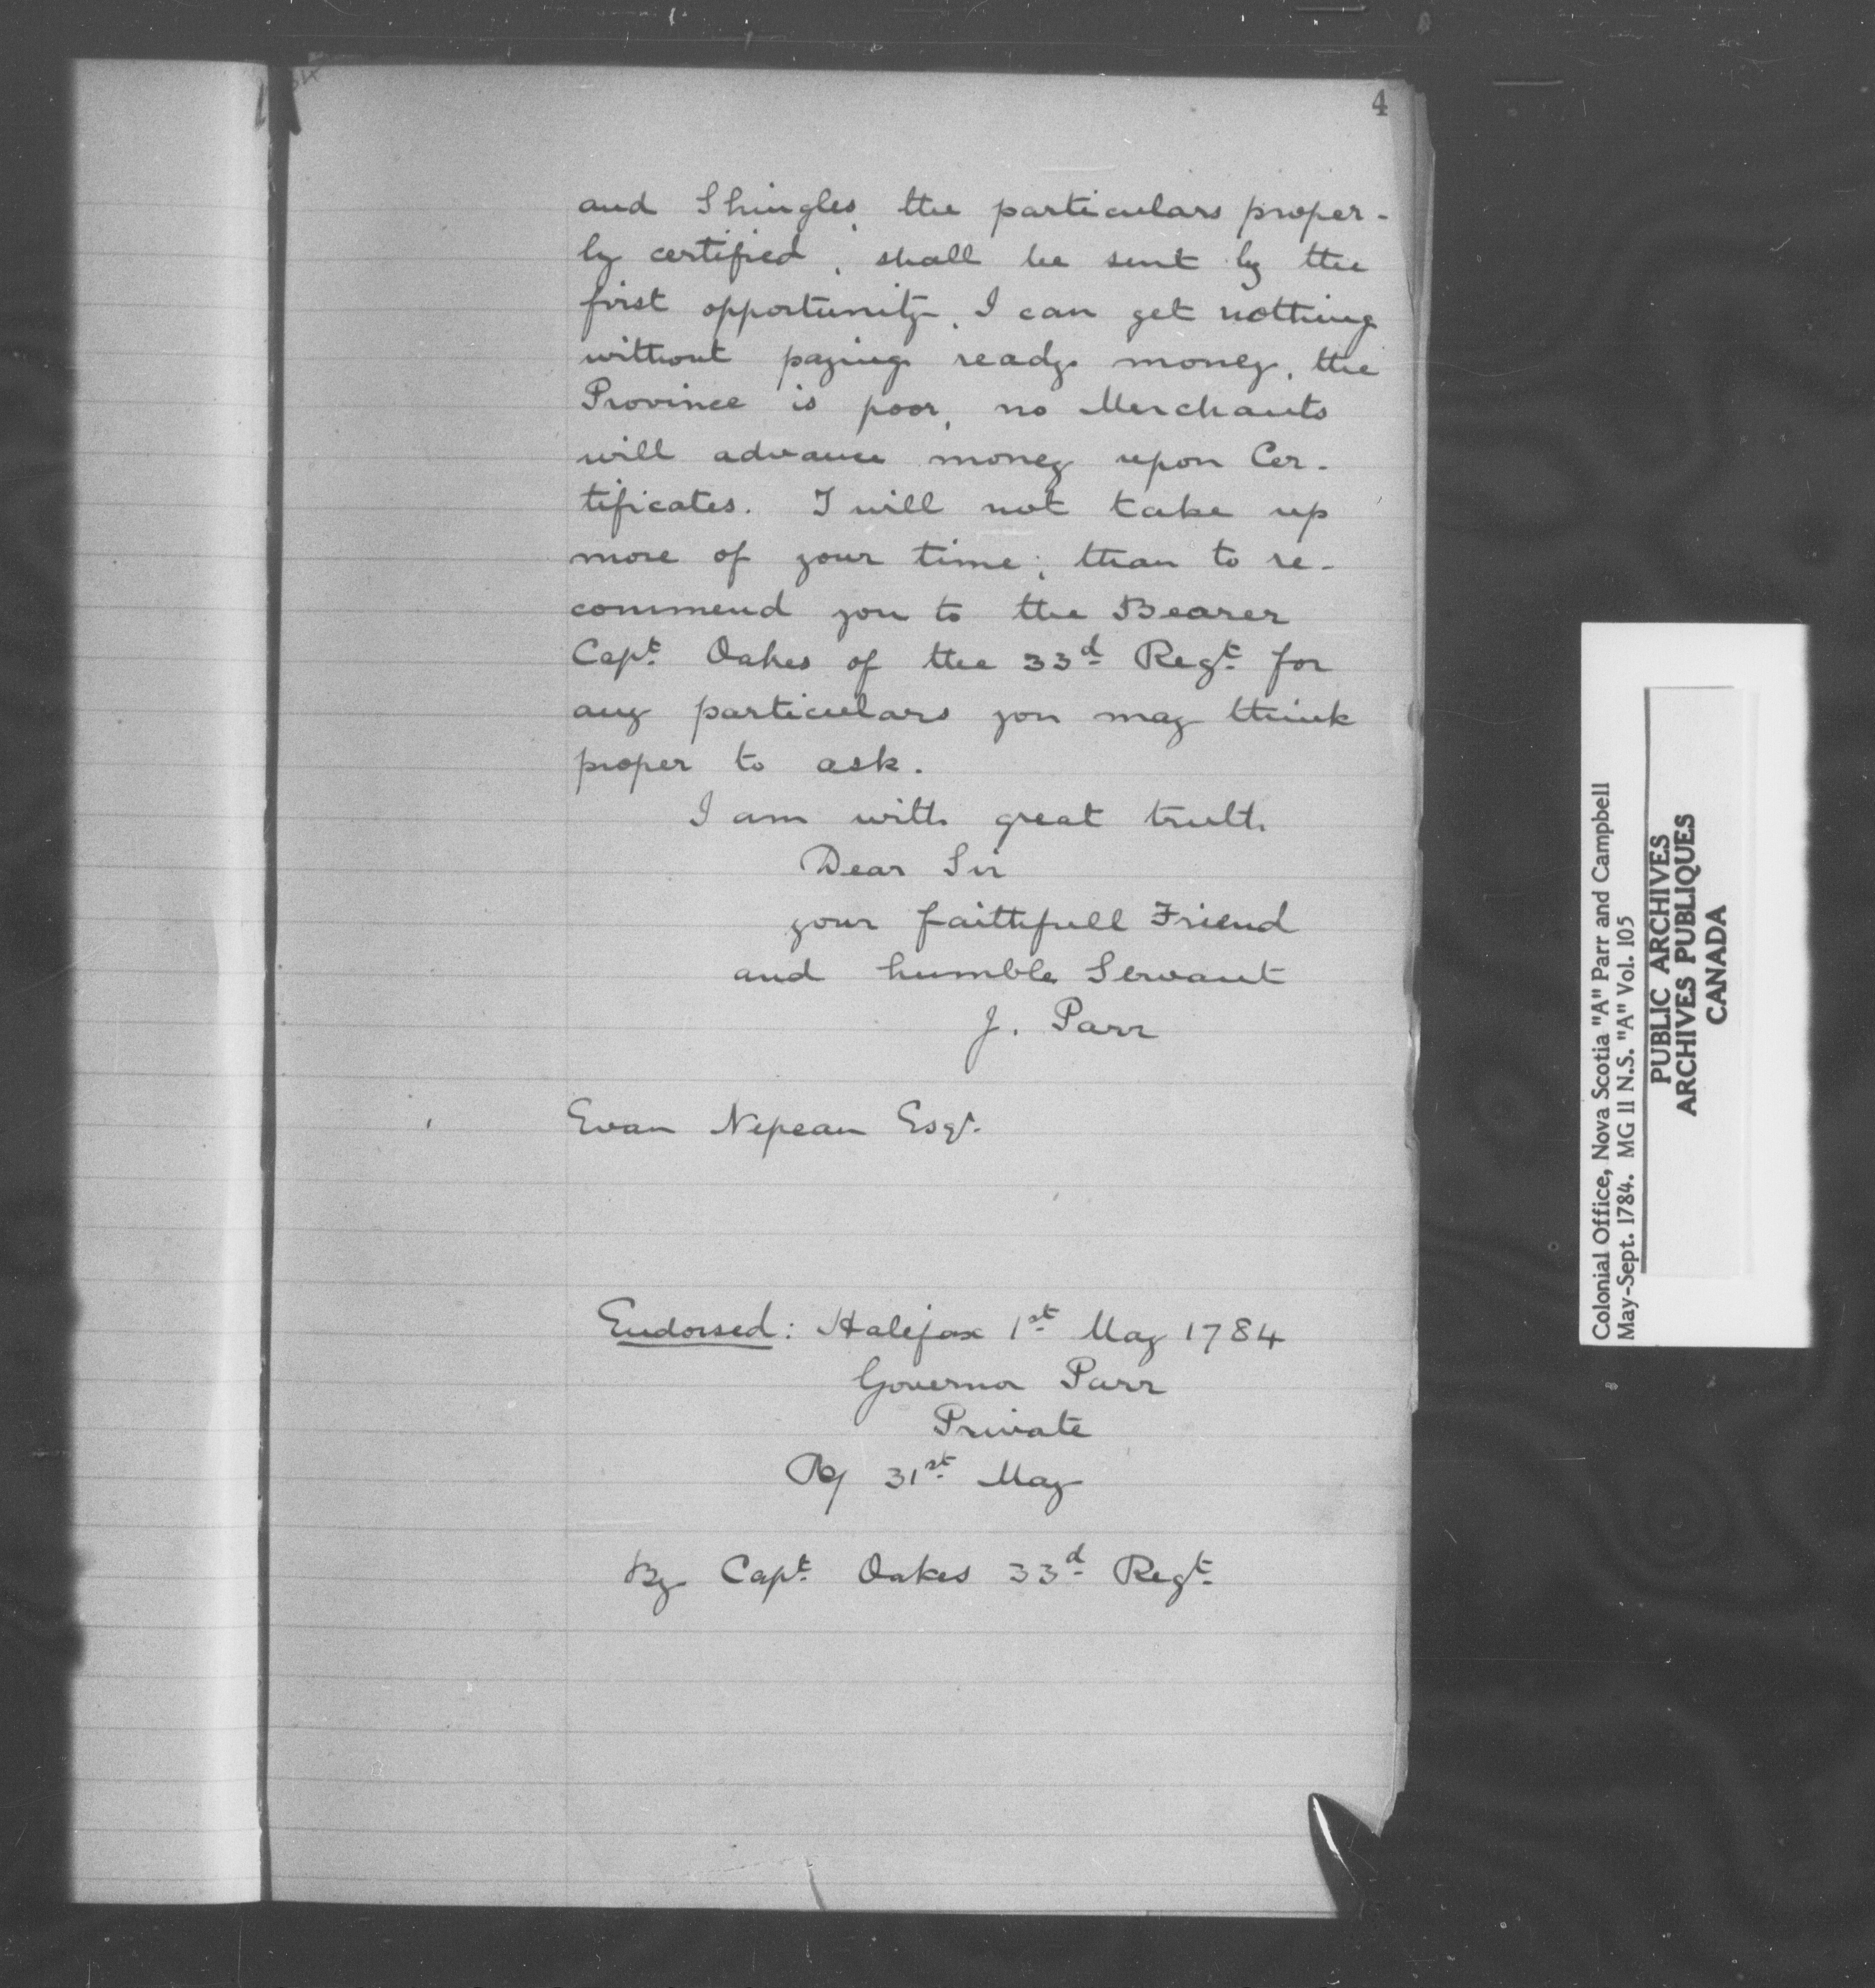 4
and Shingles, the particulars proper-
ly certified, shall be sent by the
first opportunity, I can get nothing
without paying ready money, the
Province is poor, no Merchants
will advance money upon Cer-
tificates. I will not take up
more of your time, than to re-
commend you to the Bearer
Capt. Oakes of the 33d Regt. for
any particulars you may think
proper to ask.
I am with great truth
Dear Sir
your faithfull Friend
and humble Servant
J. Parr
Evan Nepean Esqr.
Endorsed: Halifax 1st May 1784
Governor Parr
Private
31st May
By Capt. Oakes 33d Regt.
Colonial Office, Nova Scotia "A" Parr and Campbell
May-Sept. 1784. MG 11 N.S. "A" Vol. 105
PUBLIC ARCHIVES
ARCHIVES PUBLIQUES
CANADA